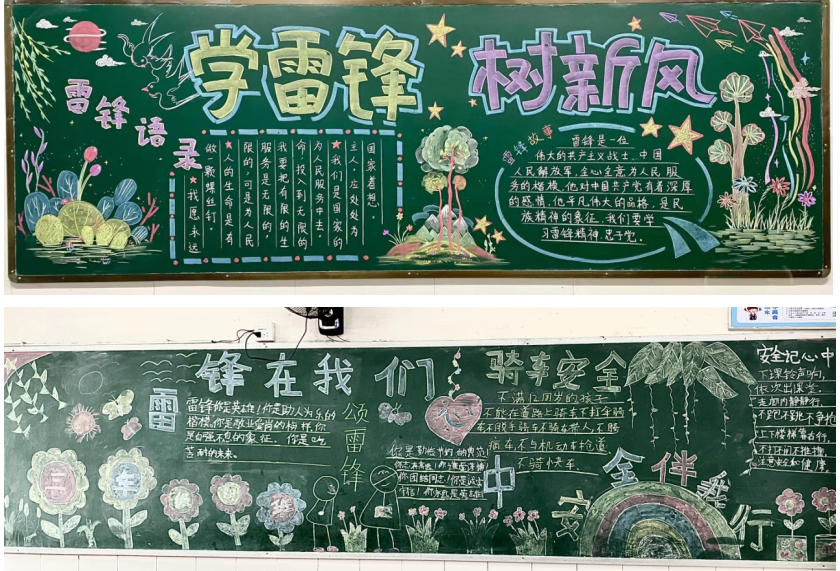 学雷锋
树新风
雷锋语录
★我愿永远
做颗螺丝钉。
★人的生命是有
限的，可是为人民
服务是无限的，
我要把有限的生
命，投入到无限的
为人民服务中去。
★我们是国家的
主人，应处处为
国家着想。
雷锋故事
雷锋是一位
伟大的共产主义战士，中国
人民解放军，全心全意为人民服
务的楷模，他对中国共产党有着深厚
的感情，他平凡伟大的品格，是民
族精神的象征，我们要学
习雷锋精神，忠于党。
雷锋在我们
心中
雷锋你是英雄！你是助人为乐的
楷模，你是敬业爱岗的榜样，你
是自强不息的象征，你是吃
颂雷锋
你团结同志！你是派
骑车安全
不满12周岁的孩子
不能在道路上骑车，不打伞骑
不骑快车
安全伴我行
安全记心中
下课铃声响，
依次出课堂。
走加内静静行，
上下楼梯靠右行。
不打不闹不推撞，
注意安全和健康